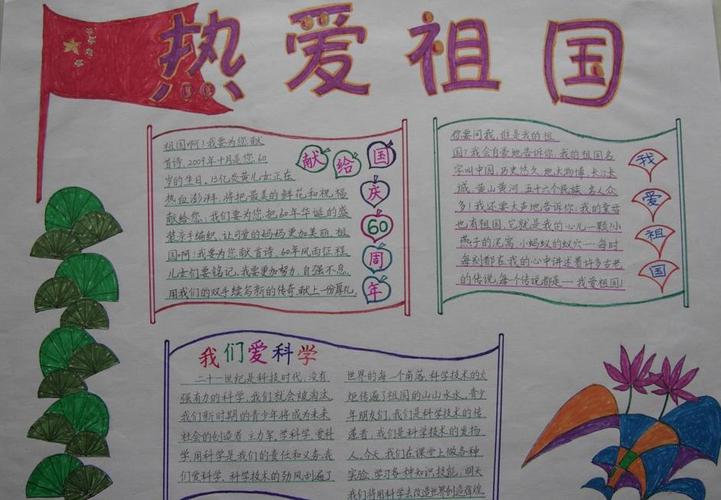 热爱祖国
祖国啊!我要为您献
首诗,2009年十月是您60
岁的生日,13亿炎黄儿女正在
热血澎湃,将把最美的鲜花和祝福
献给您,我们要为您,把60年华诞的盛
梦亲手编织,让可爱的妈妈更加美丽,祖
国啊!我要为您献首诗,60年风雨征程,
儿女们要铭记,我要更加努力,自强不息,
用我们的双手续写新的传奇,献上一份厚礼。
献给国
庆
60
周
年
你要问我,谁是我的祖
国?我会自豪地告诉你,我的祖国名
字叫中国,历史悠久,地大物博,长江长
城,黄山黄河,五十六个民族,名人众
多!我还要大声地告诉你:我的童话
也有祖国,它就是我的心儿一颗!小
燕子的泥窝,小蚂蚁的蚁穴——每时
每刻都在我的心中讲述着许多古老
的传说,每个传说都是——我爱祖国!
我
爱
祖
国
我们爱科学
二十一世纪是科技时代,没有
强有力的科学,我们就会被淘汰
我们新时期的青少年将成为未来
社会的创造者、主力军,学科学、爱科
学、用科学是我们的责任和义务,我
们爱科学,科学技术的劲风刮遍了
世界的每一个角落,科学技术的火
炬传遍了祖国的山山水水,青少
年朋友们,我们是科学技术的传
落者,我们是科学技术的发扬
人,今天,我们在课堂上做各种
实验,学习各种知识技能,明天
我们将用科学去改造世界创造辉煌